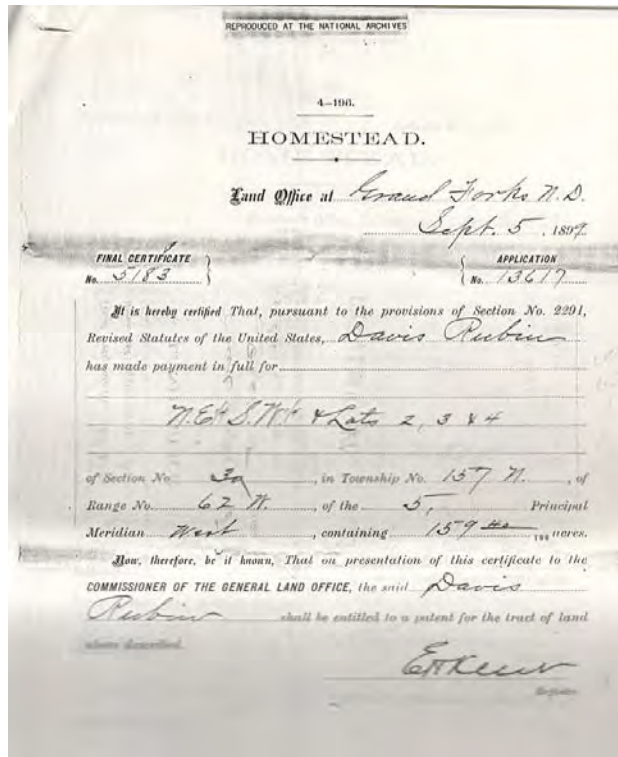 REPRODUCED AT THE NATIONAL ARCHIVES
4-196.
HOMESTEAD.
Land Office at Grand Forks N.D.
Sept. 5, 1899.
FINAL CERTIFICATE
No. 5183
APPLICATION
No. 13617
It is hereby certified That, pursuant to the provisions of Section No. 2291,
Revised Statutes of the United States, Davis Rubin
has made payment in full for
N.E¼ S.W¼ & Lots 2, 3 & 4
of Section No. 30, in Township No. 157 N., of
Range No. 62 W., of the 5, Principal
Meridian West, containing 159 /100 acres.
Now, therefore, be it known, That on presentation of this certificate to the
COMMISSIONER OF THE GENERAL LAND OFFICE, the said Davis
Rubin shall be entitled to a patent for the tract of land
above described.
Register.